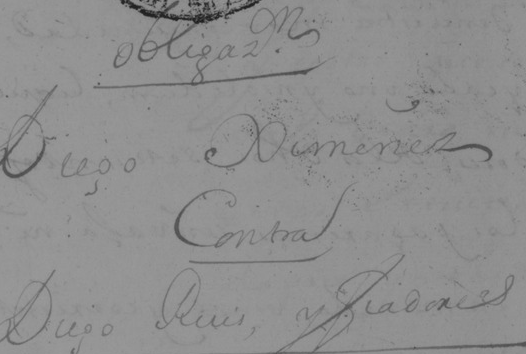 obligaz.n
Diego Ximenez
Contra
Diego Ruis, y fiadores